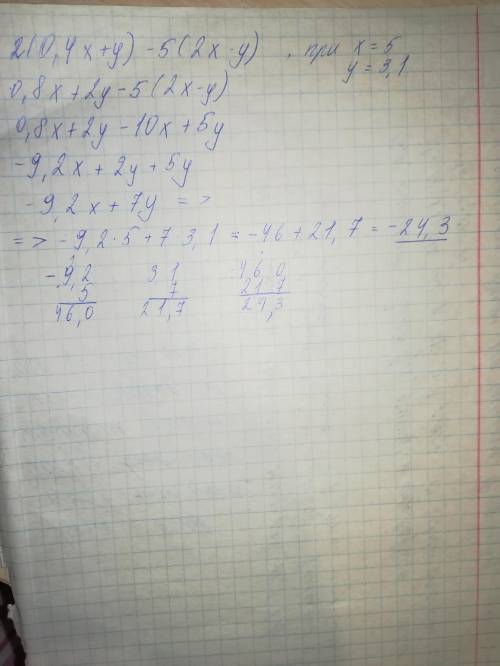 2(0,4x+y) -5(2x-y) , при x=5
y=3,1
0,8x+2y-5(2x-y)
0,8x+2y-10x+5y
-9,2x+2y+5y
-9,2x+7y =>
=> -9,2·5+7 3,1 = -46+21,7 = -24,3
-9,2 3,1 46,0
5 7 21,7
46,0 21,7 24,3